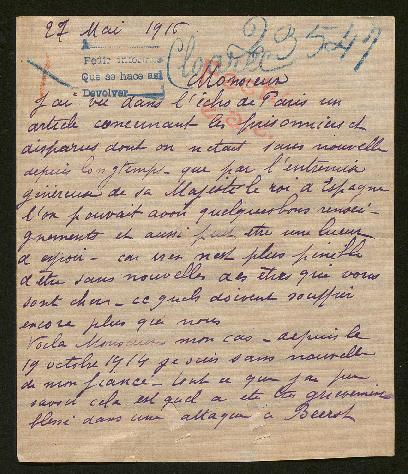 27 Mai 1916
23547
Pedir informes
Que se hace así
Devolver
Monsieur
J'ai vu dans l'écho de Paris un
article concernant les prisonniers et
disparus dont on n'etait sans nouvelle
depuis longtemps - que par l'entremise
généreuse de sa Majesté le roi d'Espagne
l'on pouvait avoir quelques bons rensei-
gnements et aussi peut être une lueur
d'espoir - car rien n'est plus pénible
d'être sans nouvelles des êtres que vous
sont cher - ce quels doivent souffrir
encore plus que nous
Voila Monsieur mon cas - depuis le
19 octobre 1914 je suis sans nouvelle
de mon fiance - tout ce que j'ai pu
savoir cela est quel a ete très grievement
blessé dans une attaque a Beerst